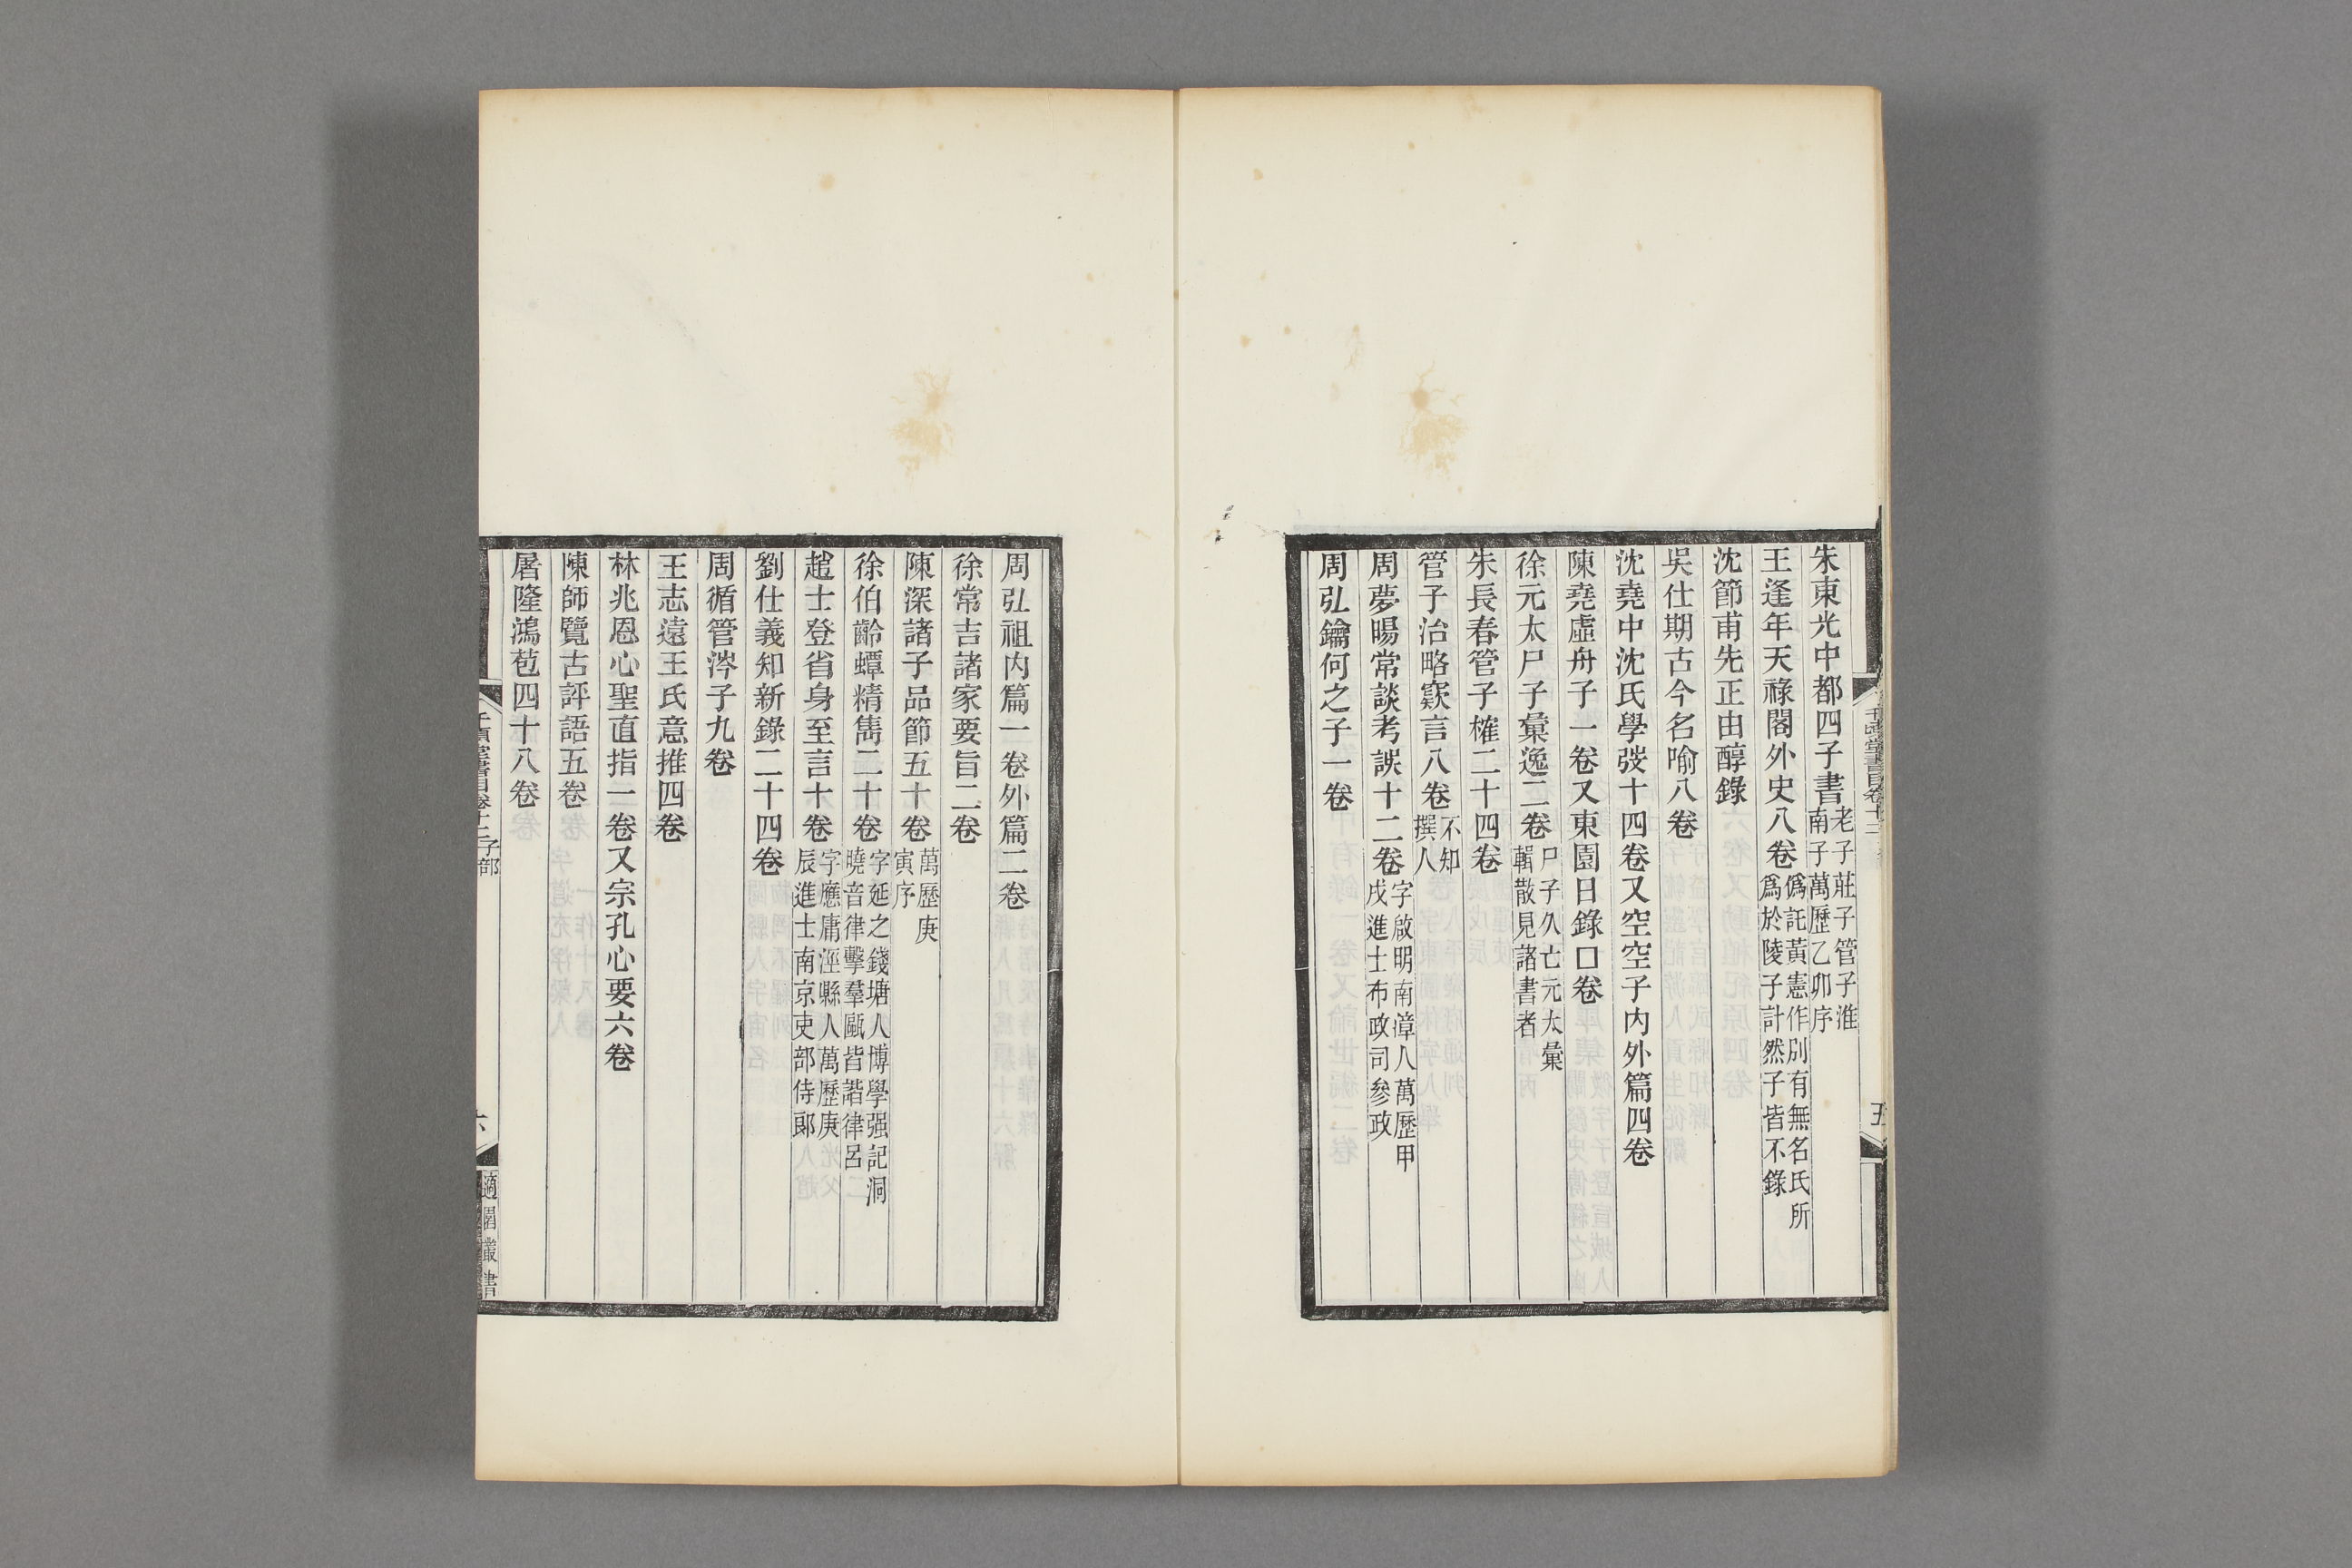 朱東光中都四子書老子莊子管子淮南子萬歷乙卯序
王逢年天祿閣外史八卷僞託黃憲作別有無名氏所爲於陵子計然子皆不錄
沈節甫先正由醇錄
吳仕期古今名喻八卷
沈堯中沈氏學弢十四卷又空空子内外篇四卷
陳堯虛舟子一卷又東園日錄口卷
徐元太尸子彙逸二卷尸子久亡元太彙輯散見諸書者
朱長春管子榷二十四卷
管子治略窾言八卷不知撰人
周夢暘常談考誤十二卷字啟明南漳人萬歷甲戌進士布政司參政
周弘鑰何之子一卷
千頃堂書目卷十二
五
周弘祖内篇一卷外篇二卷
徐常吉諸家要旨二卷
陳深諸子品節五十卷萬歷庚寅序
徐伯齡蟫精雋二十卷字延之錢塘人博學强記洞曉音律擊羣甌皆諧律呂
趙士登省身至言十卷字應庸涇縣人萬歷庚辰進士南京吏部侍郎
劉仕義知新錄二十四卷
周循管涔子九卷
王志遠王氏意推四卷
林兆恩心聖直指一卷又宗孔心要六卷
陳師覽古評語五卷
屠隆鴻苞四十八卷
千頃堂書目卷十二子部
六
適園叢書